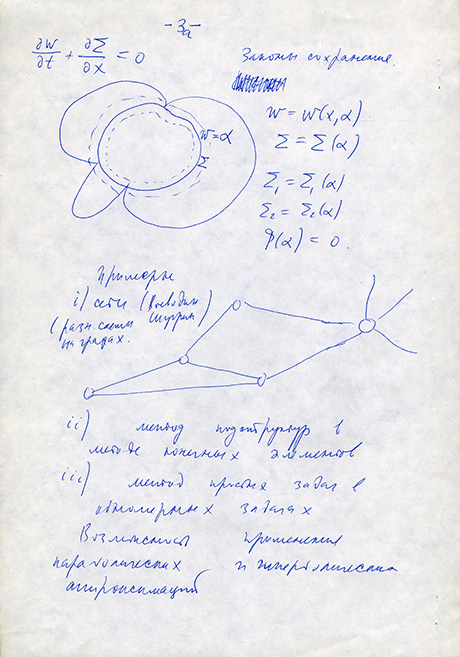 -3a-
∂w/∂t + ∂Σ/∂x = 0
Законы сохранения.
w = w(x,α)
Σ = Σ(α)
w=α
Σ
Σ₁ = Σ₁(α)
Σ₂ = Σ₂(α)
φ(α) = 0.
Примеры
i) сети (Воеводин Шугрин)
(разн. схемы
на графах.
ii) метод подструктур в
методе конечных элементов
iii) метод прямых задач в
одномерных задачах
Возможность применения
параболических и гиперболических
аппроксимаций